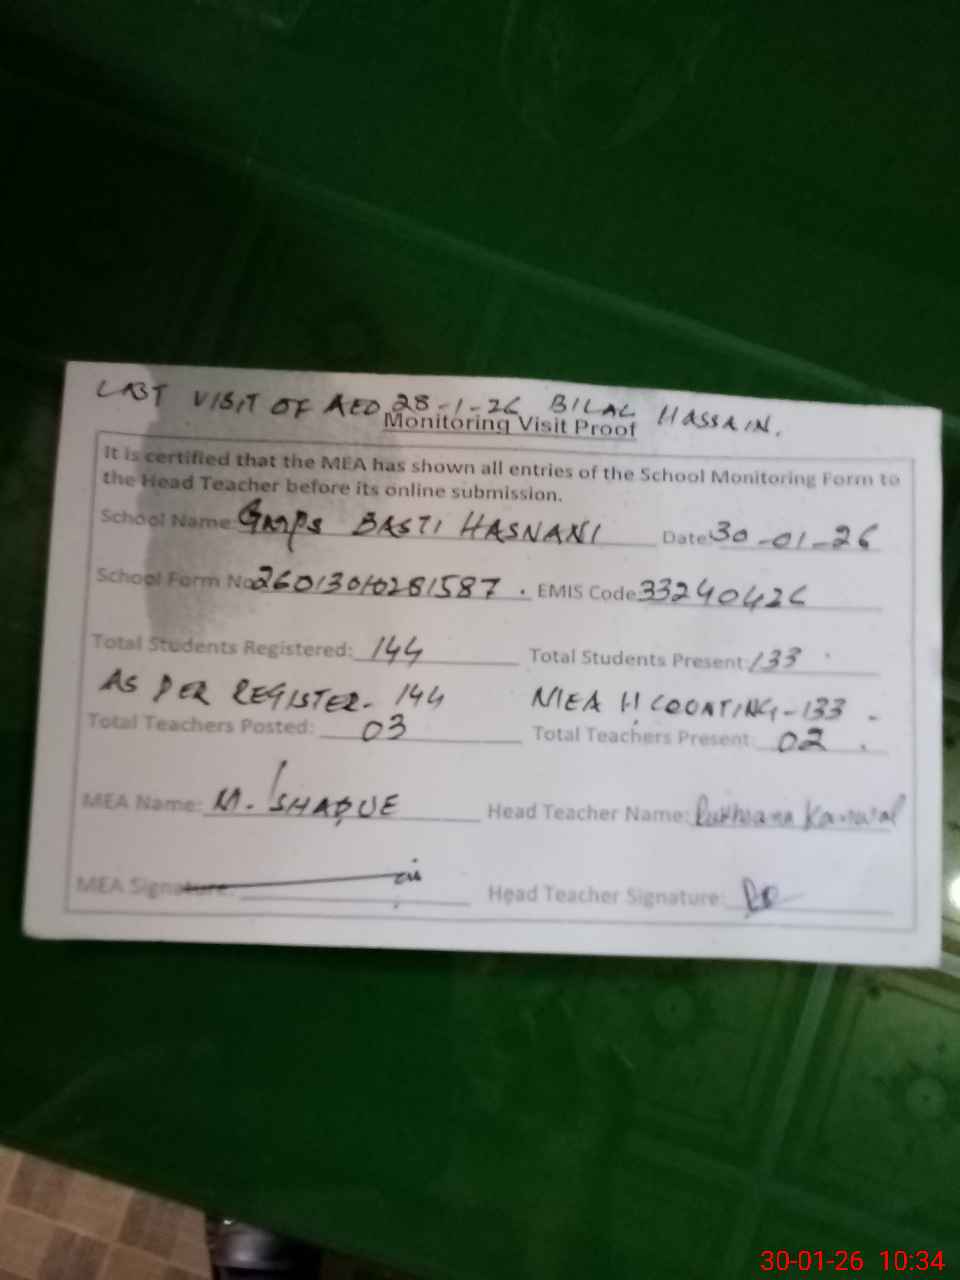 LAST VISIT OF AEO 28-1-26 BILAL HASSAIN.
Monitoring Visit Proof
It is certified that the MEA has shown all entries of the School Monitoring Form to
the Head Teacher before its online submission.
School Name: GMPS BASTI HASNANI Date: 30-01-26
School Form No. EMIS Code 33240426
Total Students Registered: 144 Total Students Present: 133
AS PER REGISTER - 144 MEA H COONTING - 133 -
Total Teachers Posted: 03 Total Teachers Present: 02
MEA Name: M. ISHAQUE Head Teacher Name: Kanwal
MEA Signature: Head Teacher Signature:
30-01-26 10:34